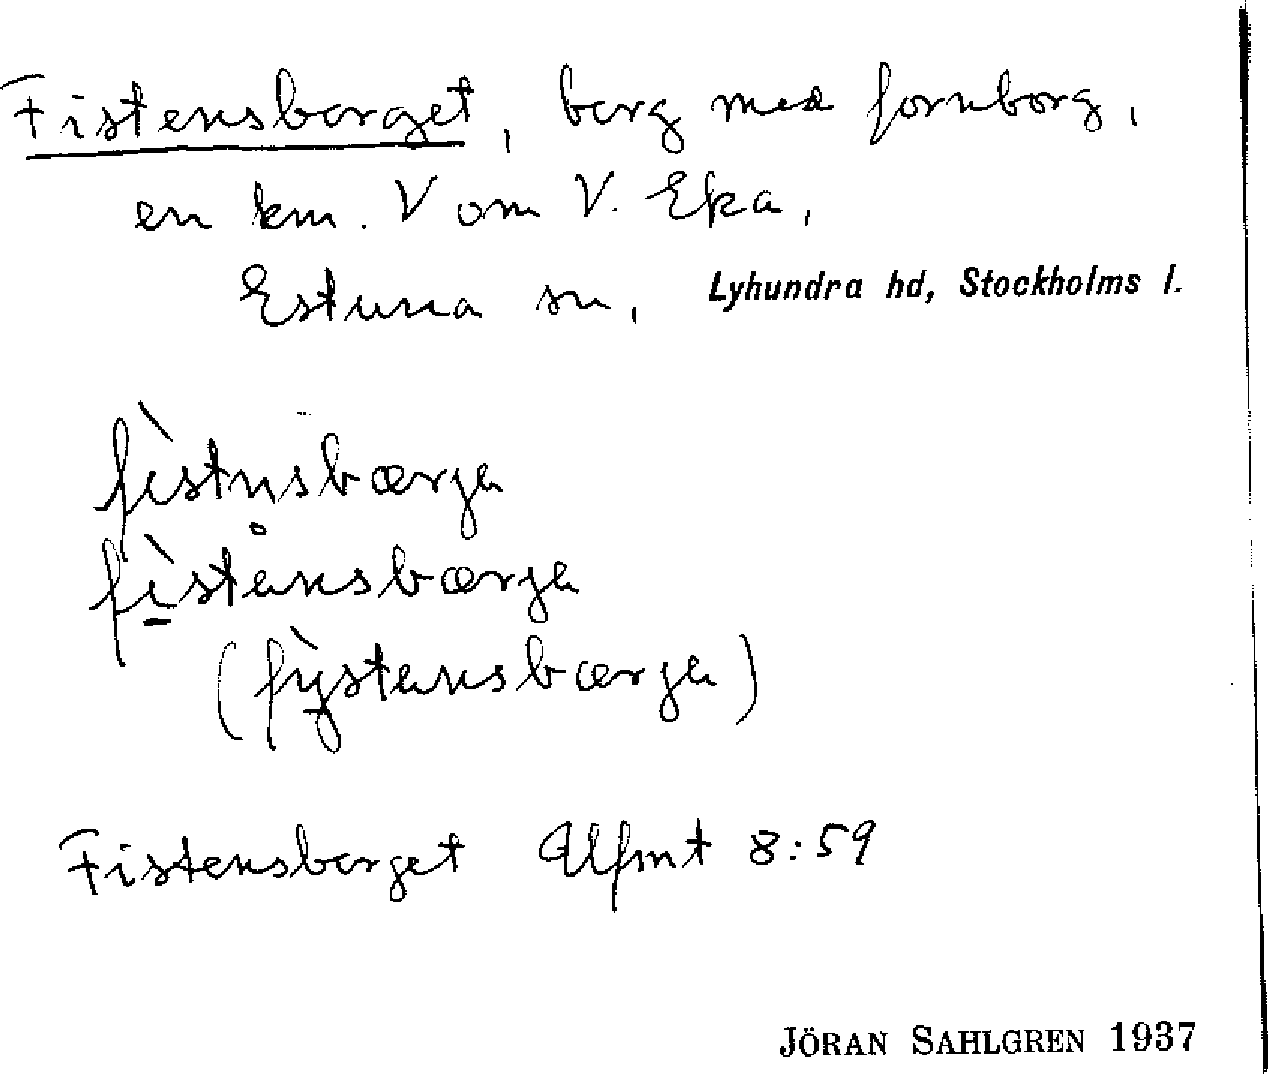 Fistensberget, berg med fornborg,
en km. V om V. Eka,
Estuna sn, Lyhundra hd, Stockholms l.
fìstn̥sbærjə
fìstənsbærjə
(fỳstənsbærjə)
Fistensberget Alfmt 8:59
JÖRAN SAHLGREN 1937